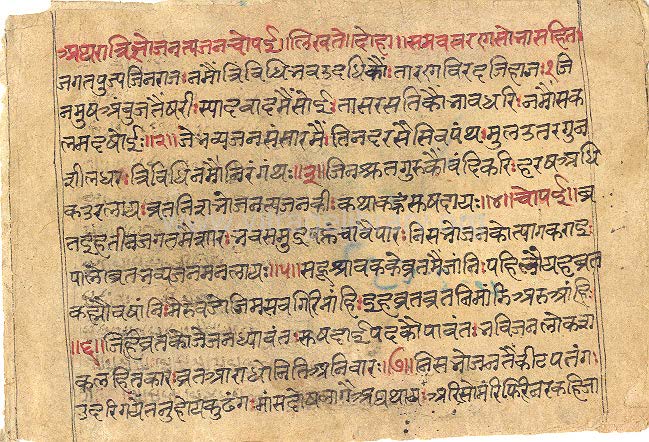 अथ रात्रिभोजनत्यजन चोपई ।लिखते।दोहा॥समवसरण सोभा सहित
जगतपुज्य जिनराज: नमौ त्रिविधि भवउदधिकौ: तारण विरद जिहाज: १ जि
नमुष अंबुजतैं षरी: स्यादवादमैं सोई: ता सरसतिकौ भाव धरि: नमौं सक
लमद षोई: ॥२॥ जे भव्यजन संसारमै: तिन दरसै सिवपंथ: मुल उतर गुन
शीलधर: त्रिविधि नमौ निरंगंथ: ॥३॥ जिन श्रुत गुरुकौं वंदि करि: हरष अधि
क उर लाय: व्रत निसभोजन त्यजनकी: कथा कहूं सुषदाय: ॥४॥ चोपई॥ व्र
त इह तीन जगतमै सार: भवसमुद्र पहुंचावे पार: निसभोजनको त्याग कराइ:
पालो व्रत भव्यजन मन लाय: ॥५॥ सहु श्रावकके व्रतमै जांनि: पहिलै यह व्रत
कह्यौ वषांनि: मेरु वडो जिम सव गिरि मांहि: इह व्रत व्रतनि मांहि अरु आंहि:
॥६॥ जिहि व्रतको जे जन ध्यावंत: सुषदाई पदको पावंत: भविजन लोक स
कल हितकार: व्रत आराधो निति अनिवार: ॥७॥ निसभोजनतैं कीट पतंग:
उदरि गयै तन होय कुढंग: मांस दोष लागै अधाय: अरि सो मरि फिरि नरकहि जा